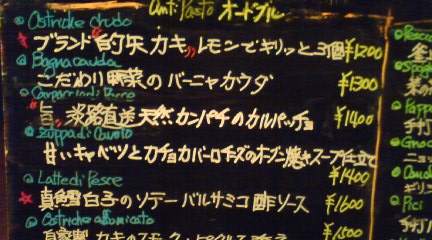 Anti Pasto オードブル
Ostriche crudo
ブランド"的矢カキ"レモンでキリッと3個 ¥1200
Bagna cauda
こだわり野菜のバーニャカウダ ¥1300
Carpaccio di Pesce
"旨"淡路直送天然カンパチのカルパッチョ ¥1400
Zuppa di Cavolo
甘いキャベツとカチョカバロチーズのオーブン焼きスープ仕立て ¥1400
Latte di Pesce
真鱈白子のソテーバルサミコ酢ソース ¥1600
Ostriche affumicato
自家製 カキのスモーク ¥1500
Pesce
Spag
Papp
手打
Gno
ニョッ
Pici
手打